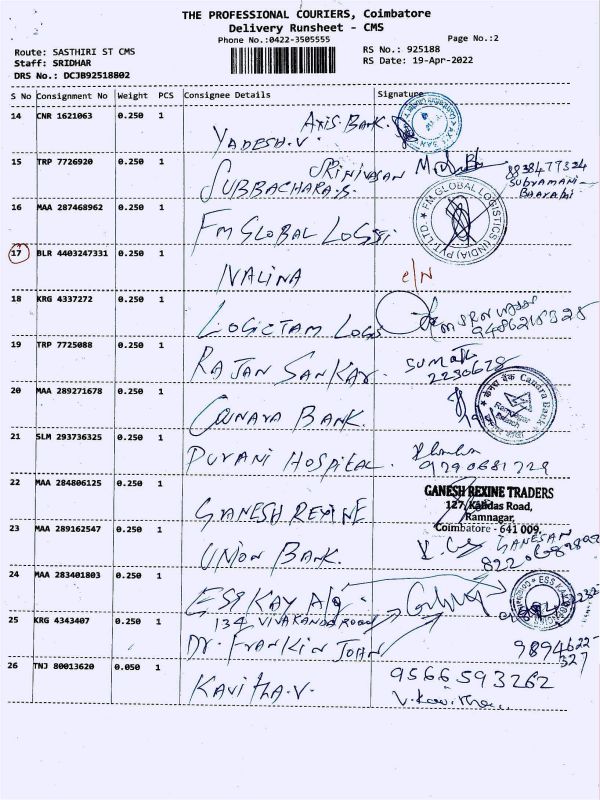 THE PROFESSIONAL COURIERS, Coimbatore
Delivery Runsheet - CMS
Phone No.:0422-3505555
Page No.:2
Route: SASTHIRI ST CMS
Staff: SRIDHAR
DRS No.: DCJB92518802
RS No.: 925188
RS Date: 19-Apr-2022
S No Consignment No Weight PCS Consignee Details Signature
14 CNR 1621063 0.250 1
AXIS BANK
YADESH.V.
15 TRP 7726920 0.250 1
SRINIVASAN
SUBBACHARA.S.
8838477324
16 MAA 287468962 0.250 1
FM GLOBAL LOGISSI
FM GLOBAL LOGISTICS (INDIA) PVT. LTD.
17 BLR 4403247331 0.250 1
NALINA
e/N
18 KRG 4337272 0.250 1
LOGICTAM LOGS
19 TRP 7725088 0.250 1
RAJAN SANKAR.
2230628
20 MAA 289271678 0.250 1
CANARA BANK.
Canara Bank
21 SLM 293736325 0.250 1
PURANI HOSPITAL.
22 MAA 284806125 0.250 1
GANESH REXINE
GANESH REXINE TRADERS
127, Kalidas Road,
Ramnagar,
Coimbatore - 641 009.
23 MAA 289162547 0.250 1
UNION BANK.
GANESAN
24 MAA 283401803 0.250 1
ESS KAY
25 KRG 4343407 0.250 1
134, VIVAKANDA ROAD
Dr. FRANKIN JOHN
9894622327
26 TNJ 80013620 0.050 1
KAVITHA.V.
9566593262
V. Kavitha